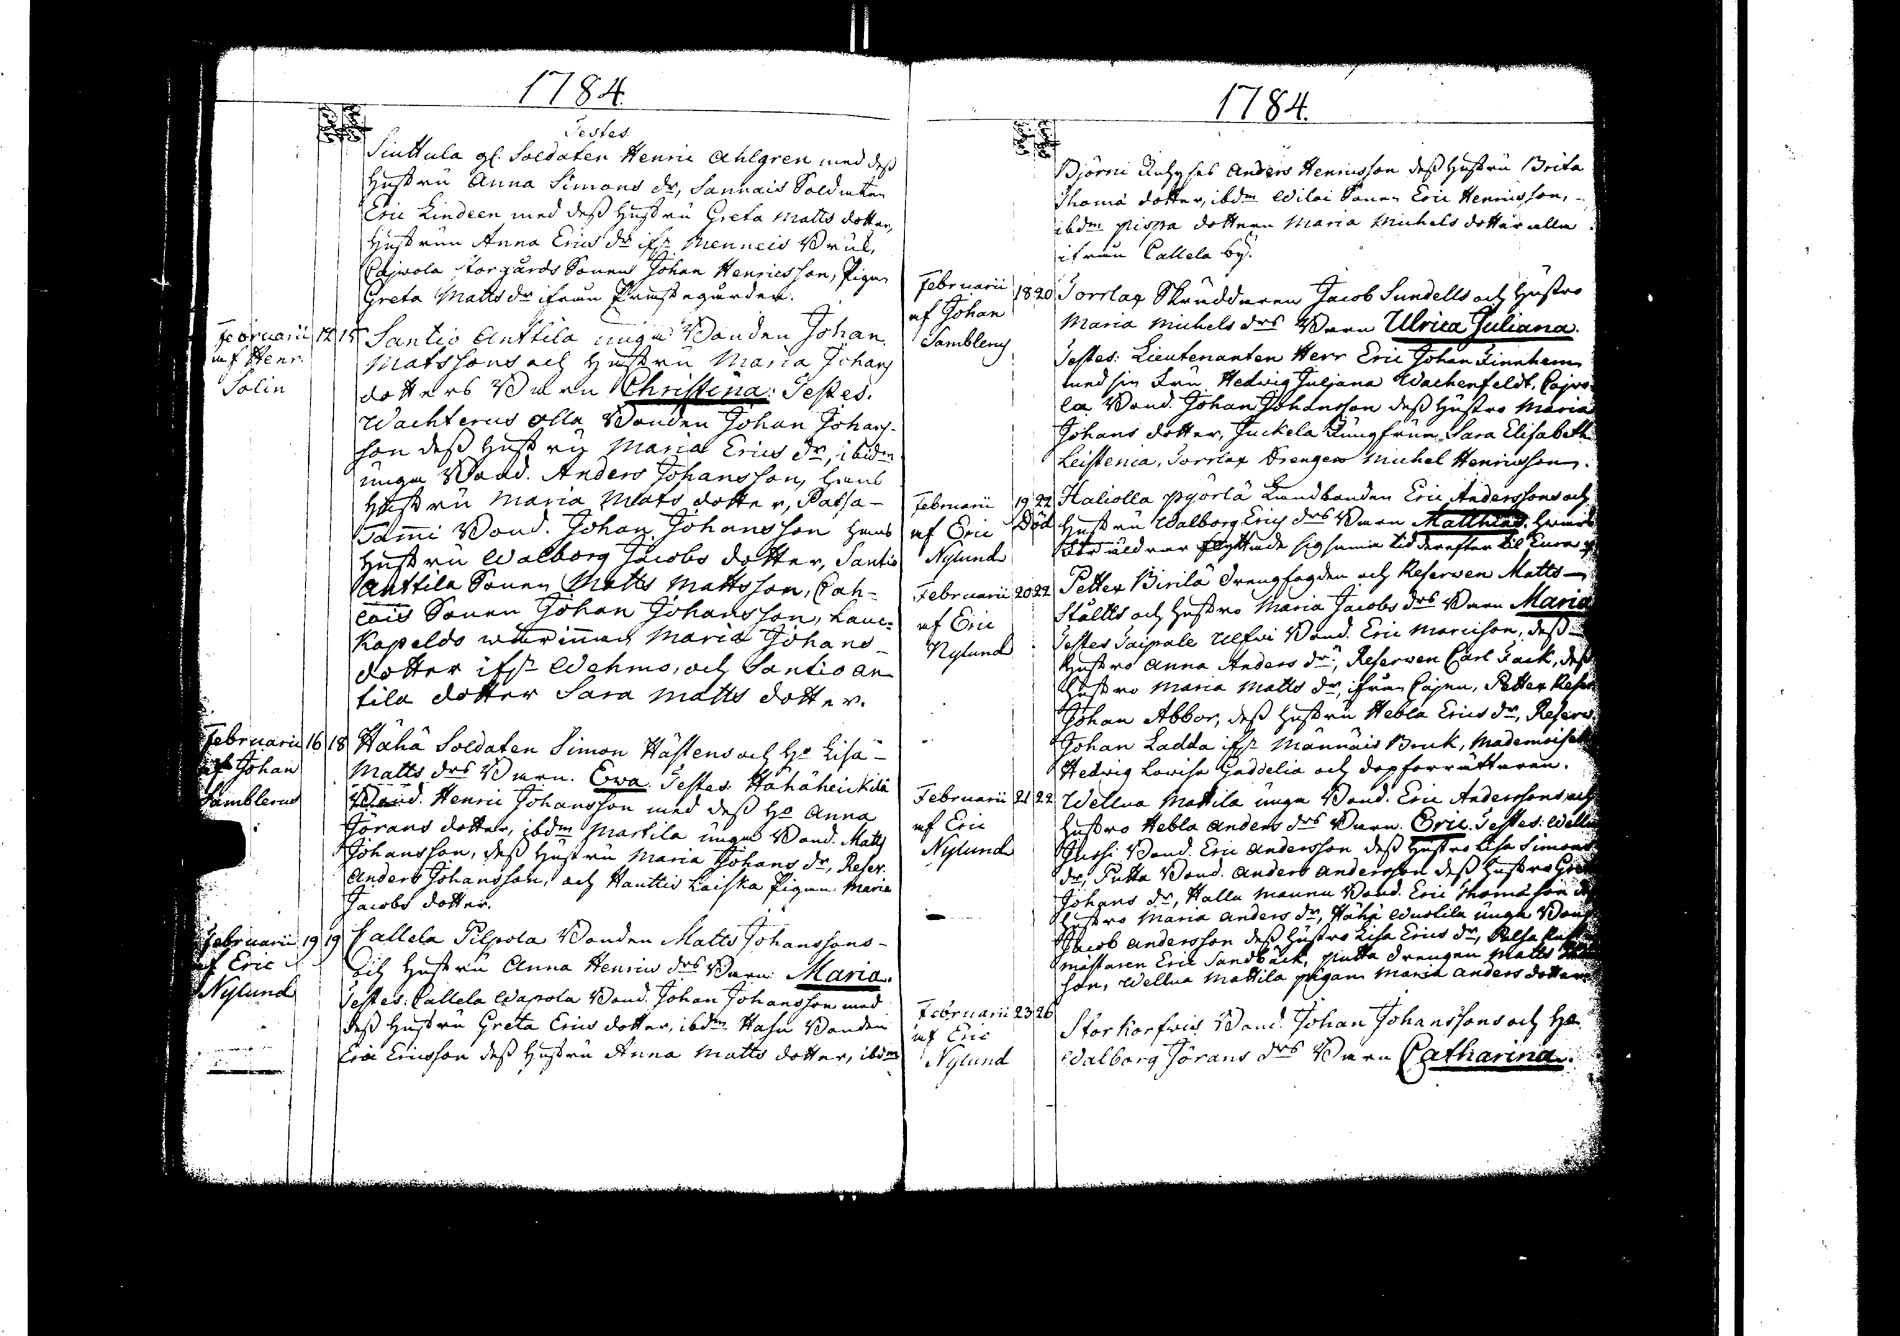 1784.
Testes
Siuttula gl. Soldaten Henric Ahlgren med deß
Hustru Anna Simons dr, Sannais Soldaten
Eric Lindeen med deß Hustru Greta Matts dotter,
Hustrun Anna Erics dr ifr. Menneis Bruk,
Cajvola Storgårds Sonen Johan Henricsson, Pigan
Greta Matts dr ifrån Prestegården.
Februarii 12 15 Santio Anttila unga Bonden Johan
af Henr. Matssons och Hustru Maria Johans
Solin dotters Barn Christina: Testes.
Wachterus olla Bonden Johan Johans-
son deß Hustru Maria Erics dr, ibidm
unga Bond. Anders Johansson, hans
Hustru Maria Mats dotter, Patsa-
Tammi Bond. Johan Johansson hans
Hustru Walborg Jacobs dotter, Santio
Anttila Sonen Matts Mattsson, Cah-
lais Sonen Johan Johansson, Lauc-
kapelds Maria Johans-
dotter ifr. Wehmo, och Santio An
tila dotter Sara Matts dotter.
Februarii 16 18 Hähä Soldaten Simon Hästens och Ho Lisa
af Johan Matts drs Barn. Ewa. Testes: Hähäheickilä
Samblerus Bond. Henric Johansson med deß Ho Anna
Jörans dotter, ibdm Martila unga Bond. Matts
Johansson, deß Hustru Maria Johans dr, Reser.
Anders Johansson, och Hanttis Laiska Pigan Maria
Jacobs dotter.
Februarii 19 19 Callela Pilpola Bonden Matts Johanssons-
af Eric och Hustru Anna Henrics drs Barn: Maria.
Nylund Testes: Callela Wapola Bond. Johan Johansson med
deß Hustru Greta Erics dotter, ibdm Hasu Bonden
Eric Ericsson deß Hustru Anna Matts dotter, ibdm
1784.
Björni Anders Henricsson deß Hustru Brita
Thomä dotter, ibdm Wilai Sonen Eric Henricsson,
ibdm pispa dottern Maria Michels dotter alla
ifrån Callela by.
Februarii 18 20 Torrlax Skräddaren Jacob Sundells och Hustro
af Johan Maria Michels drs Barn Ulrica Juliana.
Samblerus Testes: Lieutenanten Herr Eric Johan
med sin Fru Hedvig Juliana Wachenfeldt, Cajvo-
la Bond. Johan Johansson deß Hustro Maria
Johans dotter, Juckela Jungfrun Sara Elisabeth
Leistenia, Torrlax Drengen Michel Henricsson.
Februarii 19 22 Haliolla pyörlä Landbonden Eric Anderssons och
af Eric Död Hustru Walborg Erics drs Barn Matthias. hwars
Nylund föräldrar flyttade sig samma tid derefter til Eura
Februarii 20 22 Petter Birilä Drengfogden och Reserven Matts
af Eric Ståltts och Hustro Maria Jacobs drs Barn Maria
Nylund Testes Taipale Ulfvi Bond. Eric Marcisson, deß
Hustro Anna Anders dr, Reserven Carl Fack, deß
Hustro Maria Matts dr, ifrån Cajen, Petter Reser
Johan Abbor, deß Hustru Hebla Erics dr, Reserv.
Johan Ladda ifr. Männäis Bruk, Mademoiselle
Hedvig Lovisa Gaddelia och dopförrättaren.
Februarii 21 22 Wellua Mattila unga Bond. Eric Anderssons och
af Eric Hustro Hebla Anders drs Barn. Eric. Testes: Wellua
Nylund Jussi Bond. Eric Andersson deß Hustro Lisa Simons
dr, Putta Bond. Anders Andersson deß Hustro Greta
Johans dr, Hallu Maunu Bond. Eric Thomasson
Hustro Maria Anders dr, Hähä Wustila unga Bond
Jacob Andersson deß Hustro Lisa Erics dr,
mästaren Eric Sandbäck, Putta Drengen Matts
son, Wellua Mattila pigan Maria Anders dotter.
Februarii 23 26 Storkorfvis Bond. Johan Johanssons och Ho
af Eric Walborg Jörans drs Barn Catharina.
Nylund